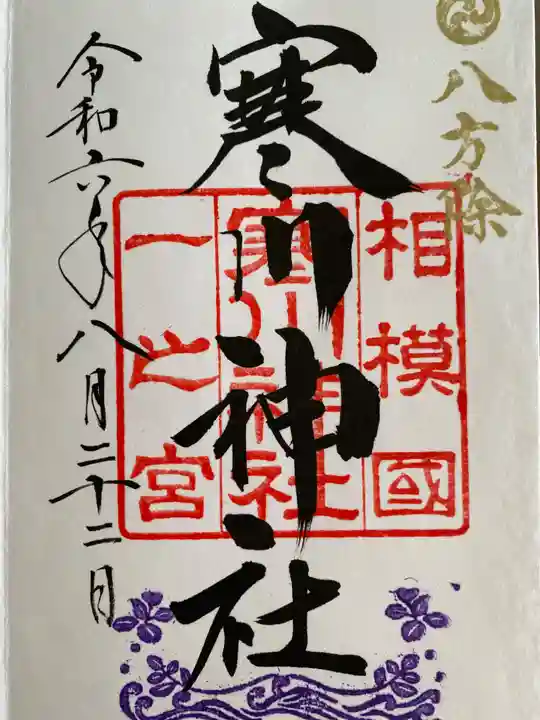 八方除
相模國
寒川神社
一之宮
寒川神社
令和六年八月二十二日